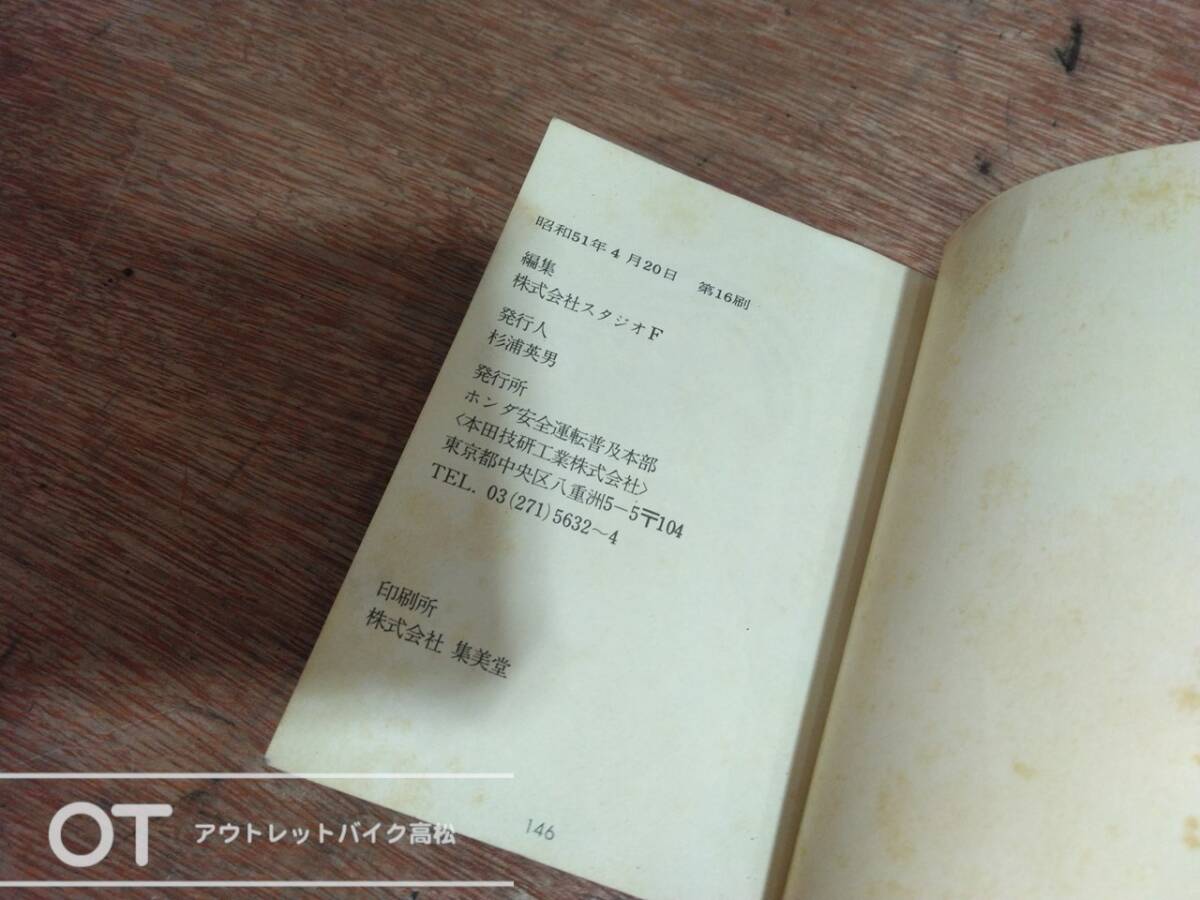 昭和51年4月20日 第16刷
編集
株式会社スタジオF
発行人
杉浦英男
発行所
ホンダ安全運転普及本部
〈本田技研工業株式会社〉
東京都中央区八重洲5-5〒104
TEL. 03(271)5632〜4
印刷所
株式会社 集美堂
146
OT アウトレットバイク高松